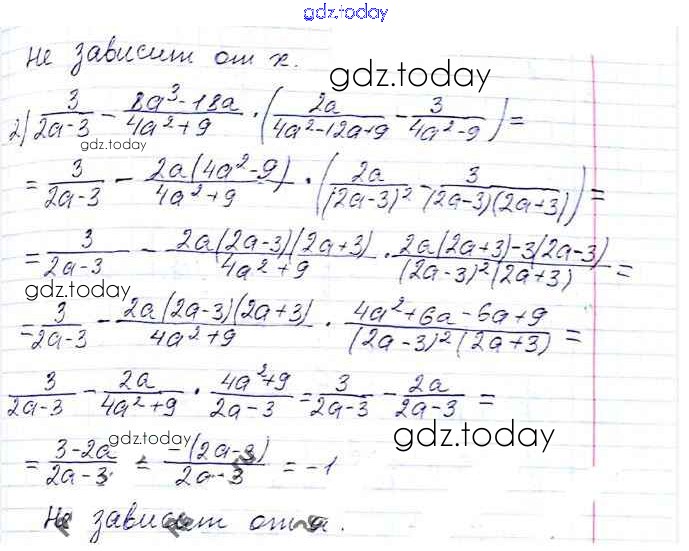 gdz.today
не зависит от x.
gdz.today
2) 3/(2a-3) - (8a³-18a)/(4a²+9) · (2a/(4a²-12a+9) - 3/(4a²-9)) =
gdz.today
= 3/(2a-3) - 2a(4a²-9)/(4a²+9) · (2a/(2a-3)² - 3/((2a-3)(2a+3))) =
= 3/(2a-3) - 2a(2a-3)(2a+3)/(4a²+9) · (2a(2a+3)-3(2a-3))/((2a-3)²(2a+3)) =
gdz.today
gdz.today
= 3/(2a-3) - 2a(2a-3)(2a+3)/(4a²+9) · (4a²+6a-6a+9)/((2a-3)²(2a+3)) =
3/(2a-3) - 2a/(4a²+9) · (4a²+9)/(2a-3) = 3/(2a-3) - 2a/(2a-3) =
gdz.today
gdz.today
= (3-2a)/(2a-3) = -(2a-3)/(2a-3) = -1
Не зависит от a.